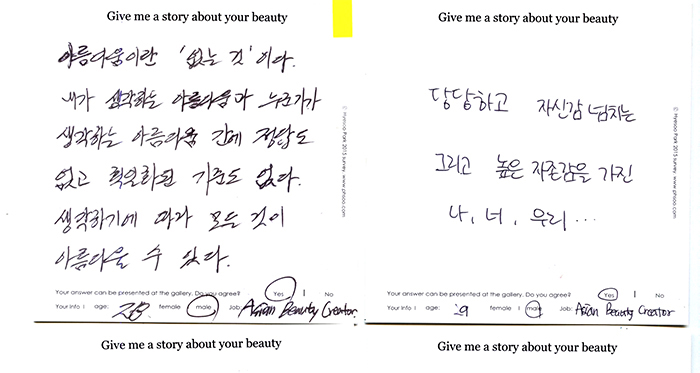 Give me a story about your beauty
아름다움이란 '없는 것'이다.
내가 생각하는 아름다움과 누군가가
생각하는 아름다움 간에 정답도
없고 획일화된 기준도 없다.
생각하기에 따라 모든 것이
아름다울 수 있다.
Your answer can be presented at the gallery. Do you agree? Yes I No
Your Info I age: 28 female I male Job: Asian Beauty Creator.
© Hyesoo Park 2015 survey www.phsoo.com
Give me a story about your beauty
Give me a story about your beauty
당당하고 자신감 넘치는
그리고 높은 자존감을 가진
나, 너, 우리...
Your answer can be presented at the gallery. Do you agree? Yes I No
Your Info I age: female I male Job: Asian Beauty Creator
Park 2015 survey www.phsoo.com
Give me a story about your beauty